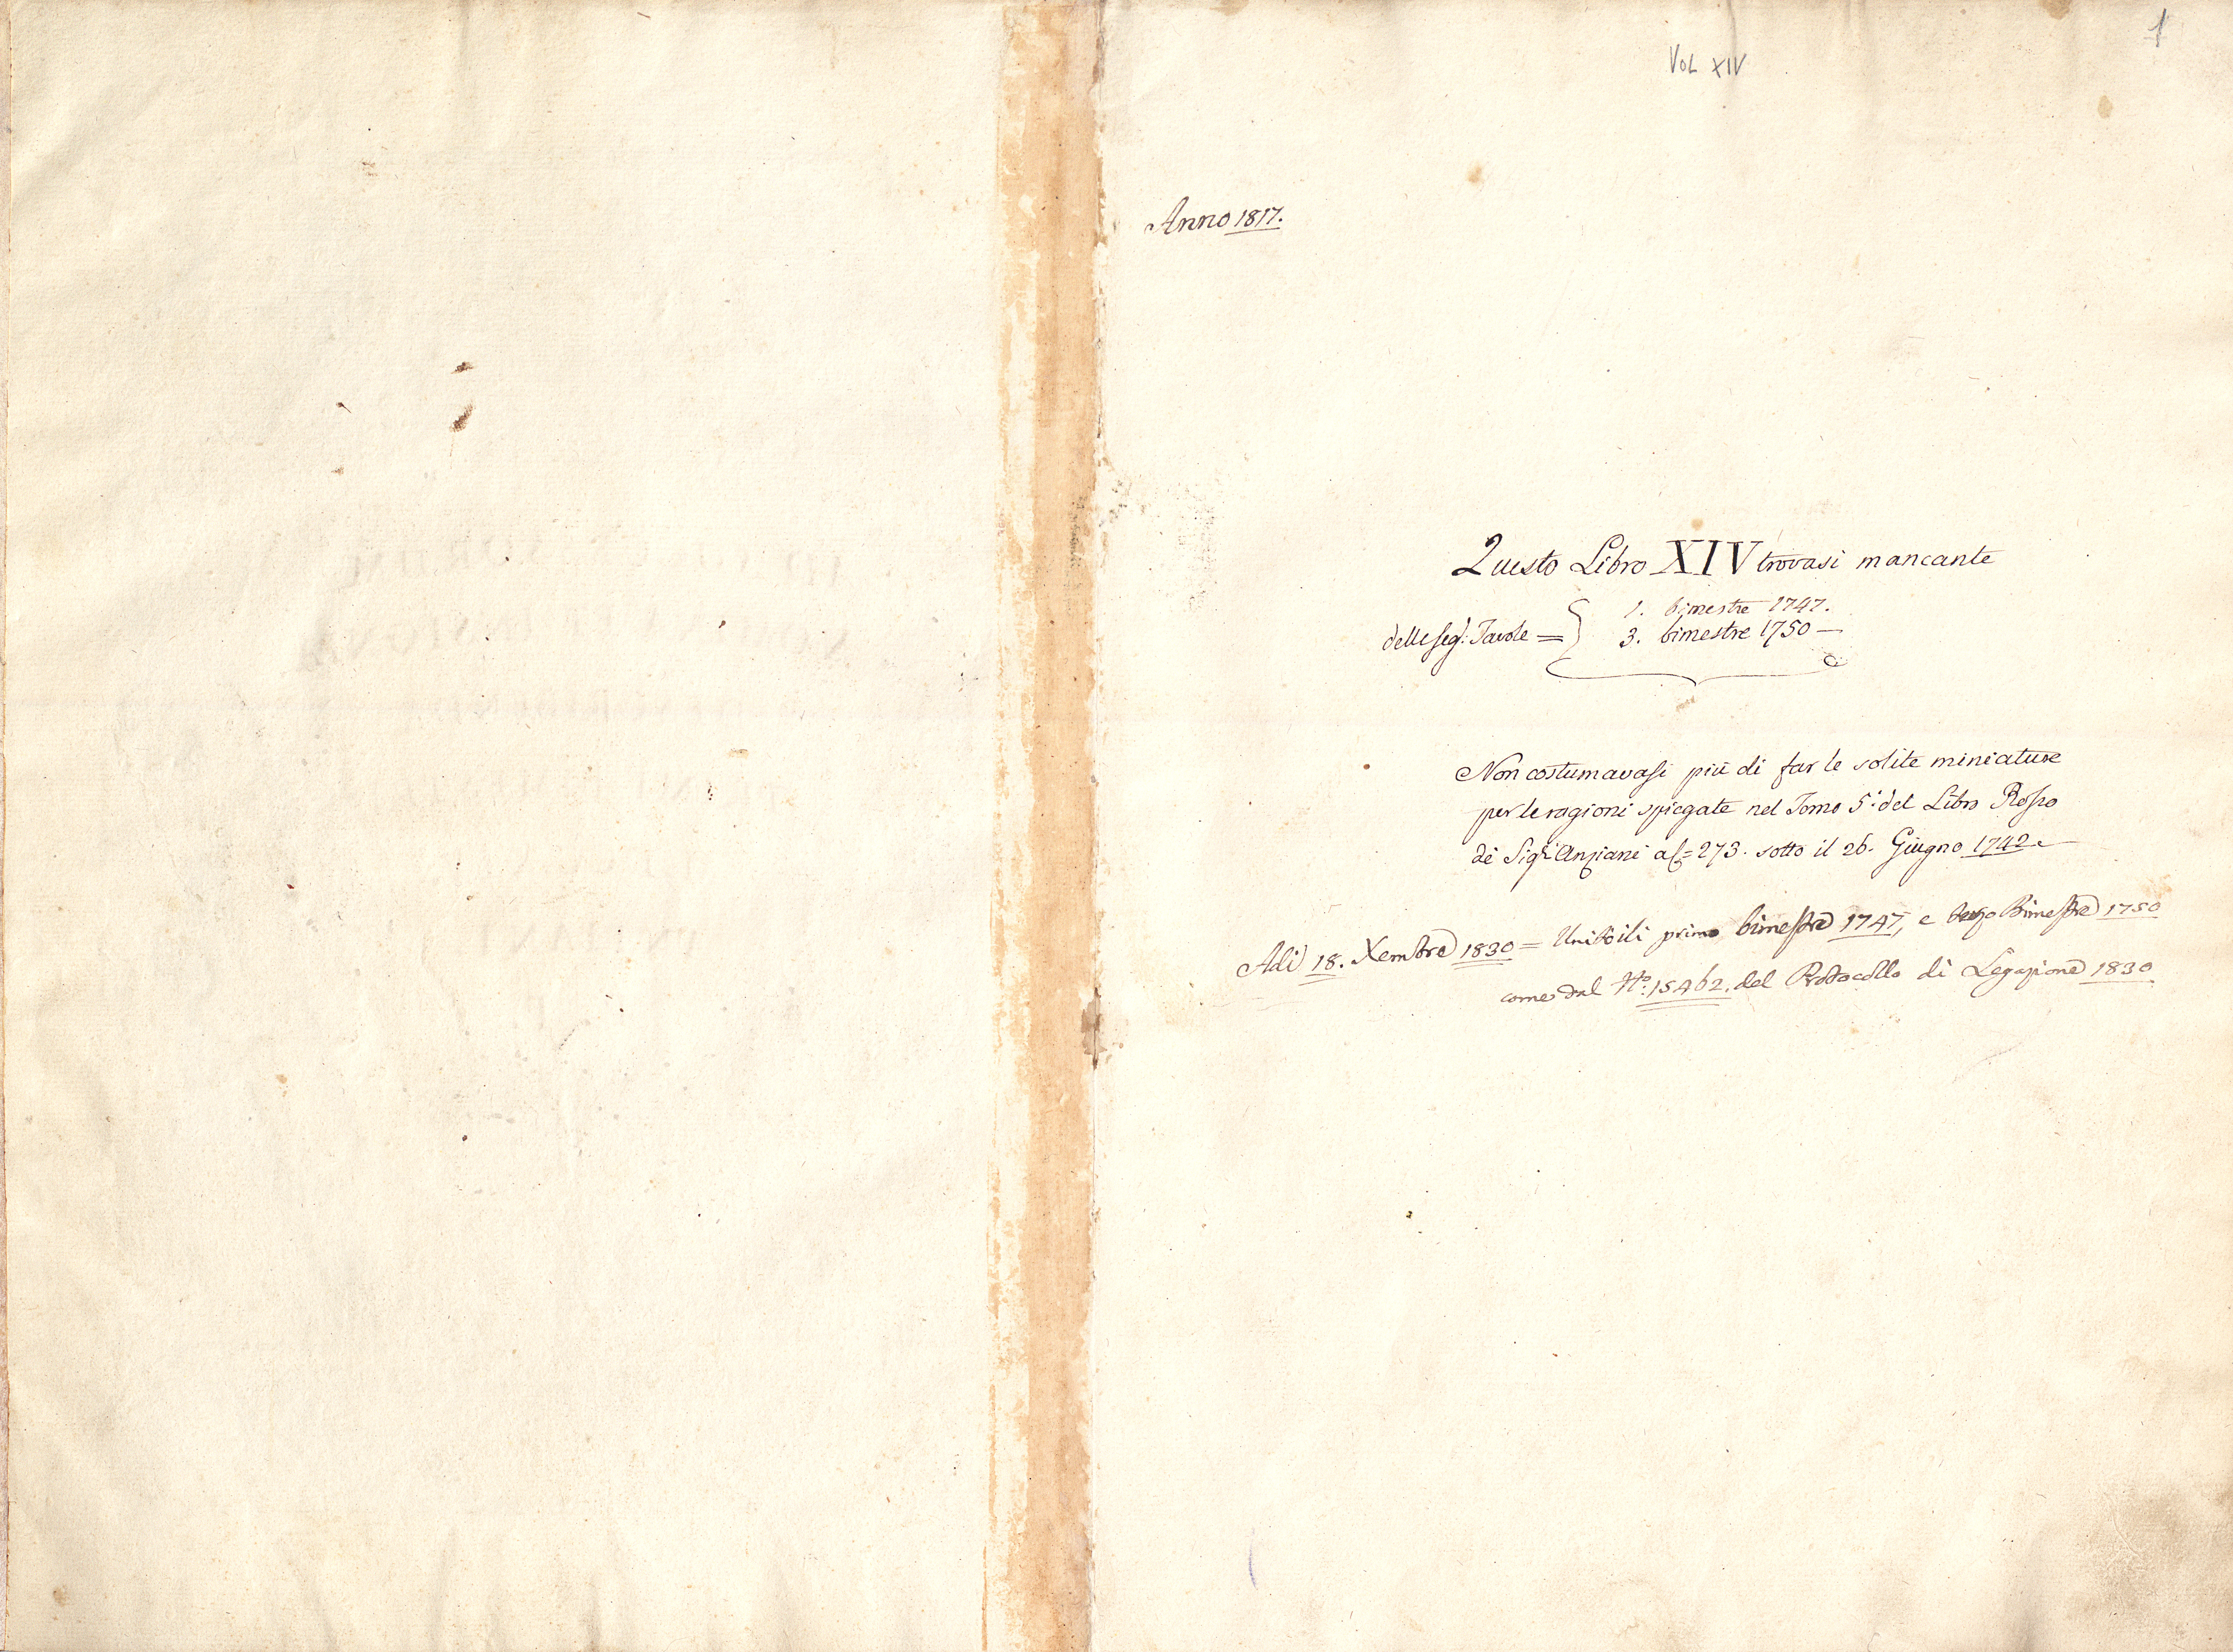 1
VOL XIV
Anno 1817.
Questo Libro XIV trovasi mancante
1. bimestre 1747.
delle seg: Tavole = 3. bimestre 1750 —
Non costumavasi più di far le solite miniature
per le ragioni spiegate nel Tomo 5: del Libro Rosso
de Sigri Anziani a f= 273. sotto il 26. Giugno 1742
Adi 18. Xembre 1830 = Unitoili primo bimestre 1747, e terzo Bimestre 1750
come dal No: 15462. del Protocollo di Legazione 1830